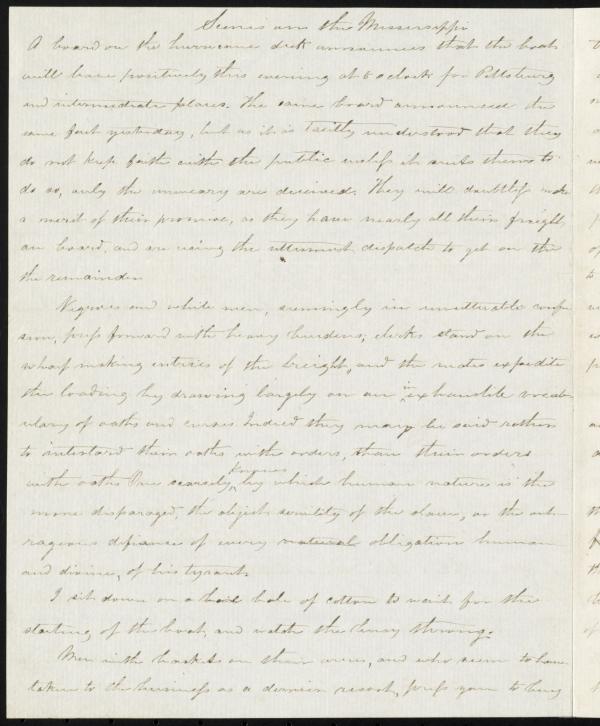 Scenes on the Mississippi
A board on the hurricane deck announces that the boat
will leave positively this evening at 6 oclock for Pittsburg
and intermediate places. The same board announced the
same fact yesterday, but as it is tacitly understood that they
do not keep faith with the public unless it suits them to
do so, only the unweary are deceived. They will doubtless make
a merit of their promise, as they have nearly all their freight
on board, and are using the uttermost dispatch to get on the
the remainder
Negroes and white men, seemingly in unutterable confu-
sion, press forward with heavy burdens; clerks stand on the
wharf making entries of the freight, and the mates expedite
the loading by drawing largely on an inexhaustible vocab-
ulary of oaths and curses Indeed they may be said rather
to interlard their oaths with orders, than their orders
with oaths One scarsely knows by which human nature is the
more disparaged, the abject servility of the slave, or the out-
rageous defiance of every natural obligation human
and divine, of his tyrant.
I sit down on a bale of cotton to wait for the
starting of the boat, and watch the busy throng.
Men with baskets on their arms, and who seem to have
taken to the business as a dernier resort, press you to buy